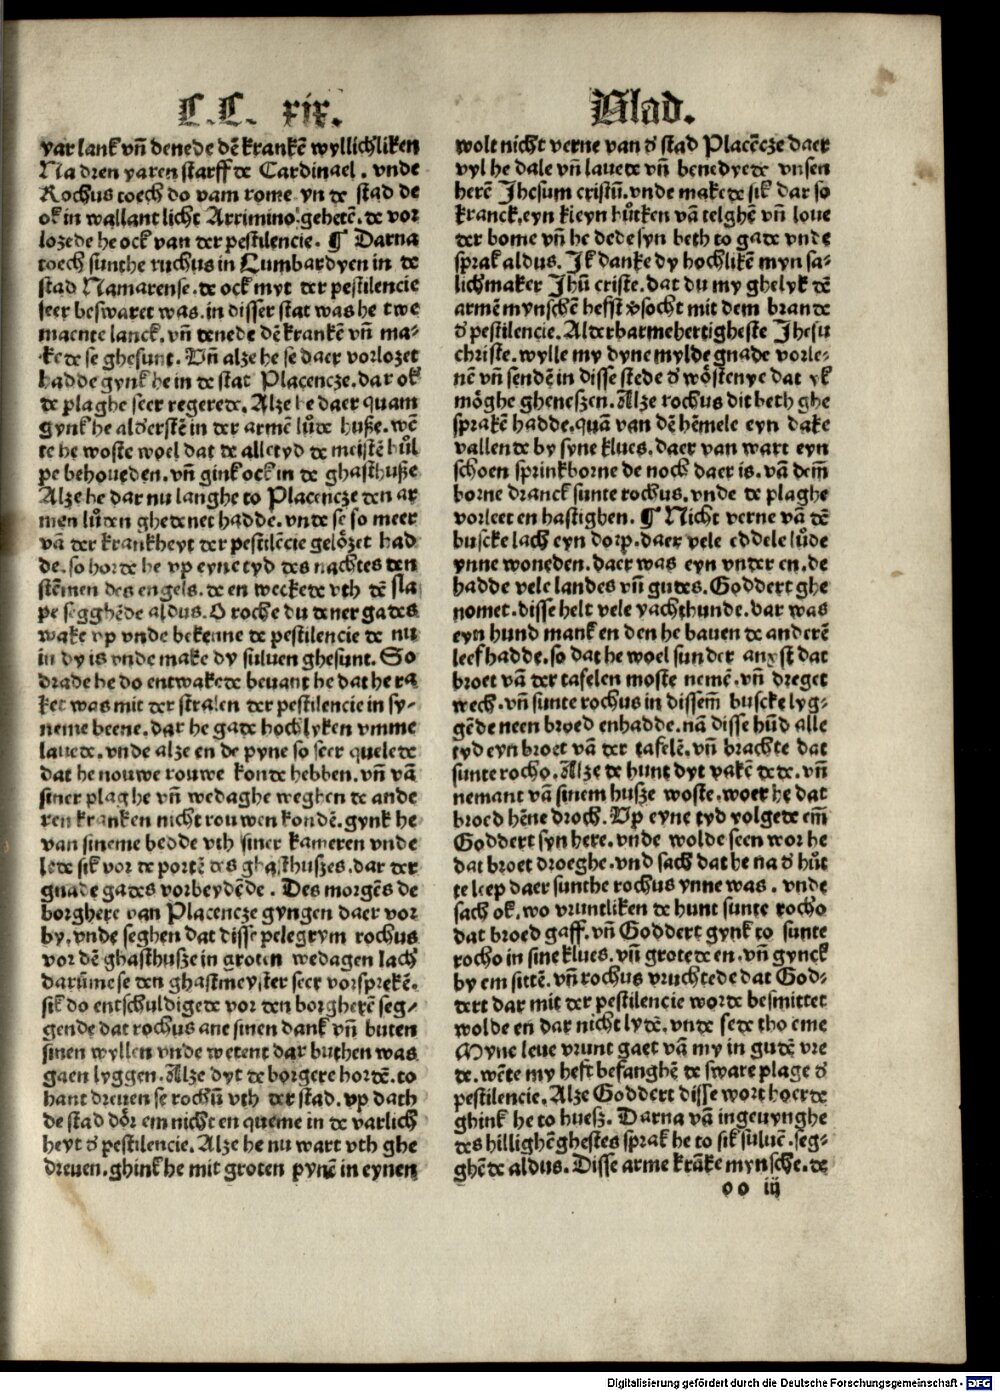 C.C. xix. Blad.
yar lank vñ denede dē krankē wyllichliken
Na dren yaren starff de Cardinael. vnde
Rochus toech do vam rome yn de stad de
ok in wallant licht Arrimino geheten. de vor
lozede he ock van der pestilencie. ¶ Darna
toech sunthe ruchus in Lumbardyen in de
stad Namarense. de ock myt der pestilencie
seer beswaret was. in disser stat was he twe
maente lanck. vñ denede dē krankē vñ ma-
kede se ghesunt. Vñ alze he se daer vorlozet
hadde gynk he in de stat Placencze. dar ok
de plaghe seer regerede. Alze he daer quam
gynk he alderstē in der armē lůde huße. wē
te he woste woel dat de alletyd de meistē hůl
pe behoueden. vñ gink ock in de ghasthuße
Alze he dar nu langhe to Placencze den ar
men lůden ghedenet hadde. vnde se so meer
vā der krankheyt der pestilēcie gelözet had
de. so horde he vp eyne tyd des nachtes den
stēmen des engels. de en weckede vth dē sla
pe segghēde aldus. O roche du dener gades
wake vp vnde bekenne de pestilencie de nu
in dy is vnde make dy suluen ghesunt. So
drade he do entwakede beuant he dat he ra
ket was mit der stralen der pestilencie in sy-
neme beene. dar he gade hochlyken vmme
lauede. vnde alze en de pyne so seer quelede
dat he nouwe rouwe konde hebben. vñ vā
siner plaghe vñ wedaghe weghen de ande
ren kranken nicht rouwen kondē. gynk he
van sineme bedde vth siner kameren vnde
lede sik vor de portē des ghasthußes. dar der
gnade gades vorbeydēde. Des morgēs de
borghere van Placencze gyngen daer vor
by. vnde seghen dat disse pelegrym rochus
vor dē ghasthuße in groten wedagen lach
darūme se den ghastmeyster seer vorsprekē.
sik do entschuldigede vor den borgherē seg-
gende dat rochus ane sinen dank vñ buten
sinen wyllen vnde wetent dar buthen was
gaen lyggen. Alze dyt de borgere hordē. to
hant dreuen se rochū vth der stad. vp dath
de stad dör em nicht en queme in de varlich
heyt d' pestilencie. Alze he nu wart vth ghe
dreuen. ghink he mit groten pynē in eynen
wolt nicht verne van d' stad Placēcze daer
vyl he dale vñ lauede vñ benedyede vnsen
herē Jhesum cristū. vnde makede sik dar so
kranck. eyn kleyn hůtken vā telghē vñ loue
der bome vñ he dede syn beth to gade vnde
sprak aldus. Jk danke dy hochlikē myn sa-
lichmaker Jhū criste. dat du my ghelyk dē
armē mynschē hefft v'socht mit dem brande
d' pestilencie. Alderbarmehertigheste Jhesu
christe. wylle my dyne mylde gnade vorle-
nē vñ sendē in disse stede d' wöstenye dat yk
möghe gheneßen. Alze rochus dit beth ghe
sprakē hadde. quā van dē hēmele eyn dake
vallende by syne klues. daer van wart eyn
schoen sprinkborne de noch daer is. vā dem̄
borne dranck sunte rochus. vnde de plaghe
vorleet en hastighen. ¶ Nicht verne vā dē
buscke lach eyn dorp. daer vele eddele lůde
ynne woneden. daer was eyn vnder en. de
hadde vele landes vñ gudes. Goddert ghe
nomet. disse helt vele yachthunde. dar was
eyn hund mank en den he bauen de anderē
leef hadde. so dat he woel sunder anxst dat
broet vā der tafelen moste nemē. vñ dreget
wech. vñ sunte rochus in dissem̄ buscke lyg-
gēde neen broed enhadde. nā disse hūd alle
tyd eyn broet vā der tafelē. vñ brachte dat
sunte rocho. Alze de hunt dyt vakē dede. vñ
nemant vā sinem huße woste. woer he dat
broed hēne droch. Vp eyne tyd volgede em̄
Goddert syn here. vnde wolde seen wor he
dat broet droeghe. vnd sach dat he na d' hůt
te leep daer sunthe rochus ynne was. vnde
sach ok. wo vruntliken de hunt sunte rocho
dat broed gaff. vñ Goddert gynk to sunte
rocho in sine klues. vñ grotede en. vñ gynck
by em sittē. vñ rochus vruchtede dat God-
dert dar mit der pestilencie worde besmittet
wolde en dar nicht lydē. vnde sede tho eme
Myne leue vrunt gaet vā my in gudē vre
de. wēte my heft befanghē de sware plage d'
pestilencie. Alze Goddert disse wort hoerde
ghink he to hueß. Darna vā ingeuynghe
des hillighē ghestes sprak he to sik suluē. seg-
ghēde aldus. Disse arme krāke mynsche. de
oo iij
Digitalisierung gefördert durch die Deutsche Forschungsgemeinschaft - DFG